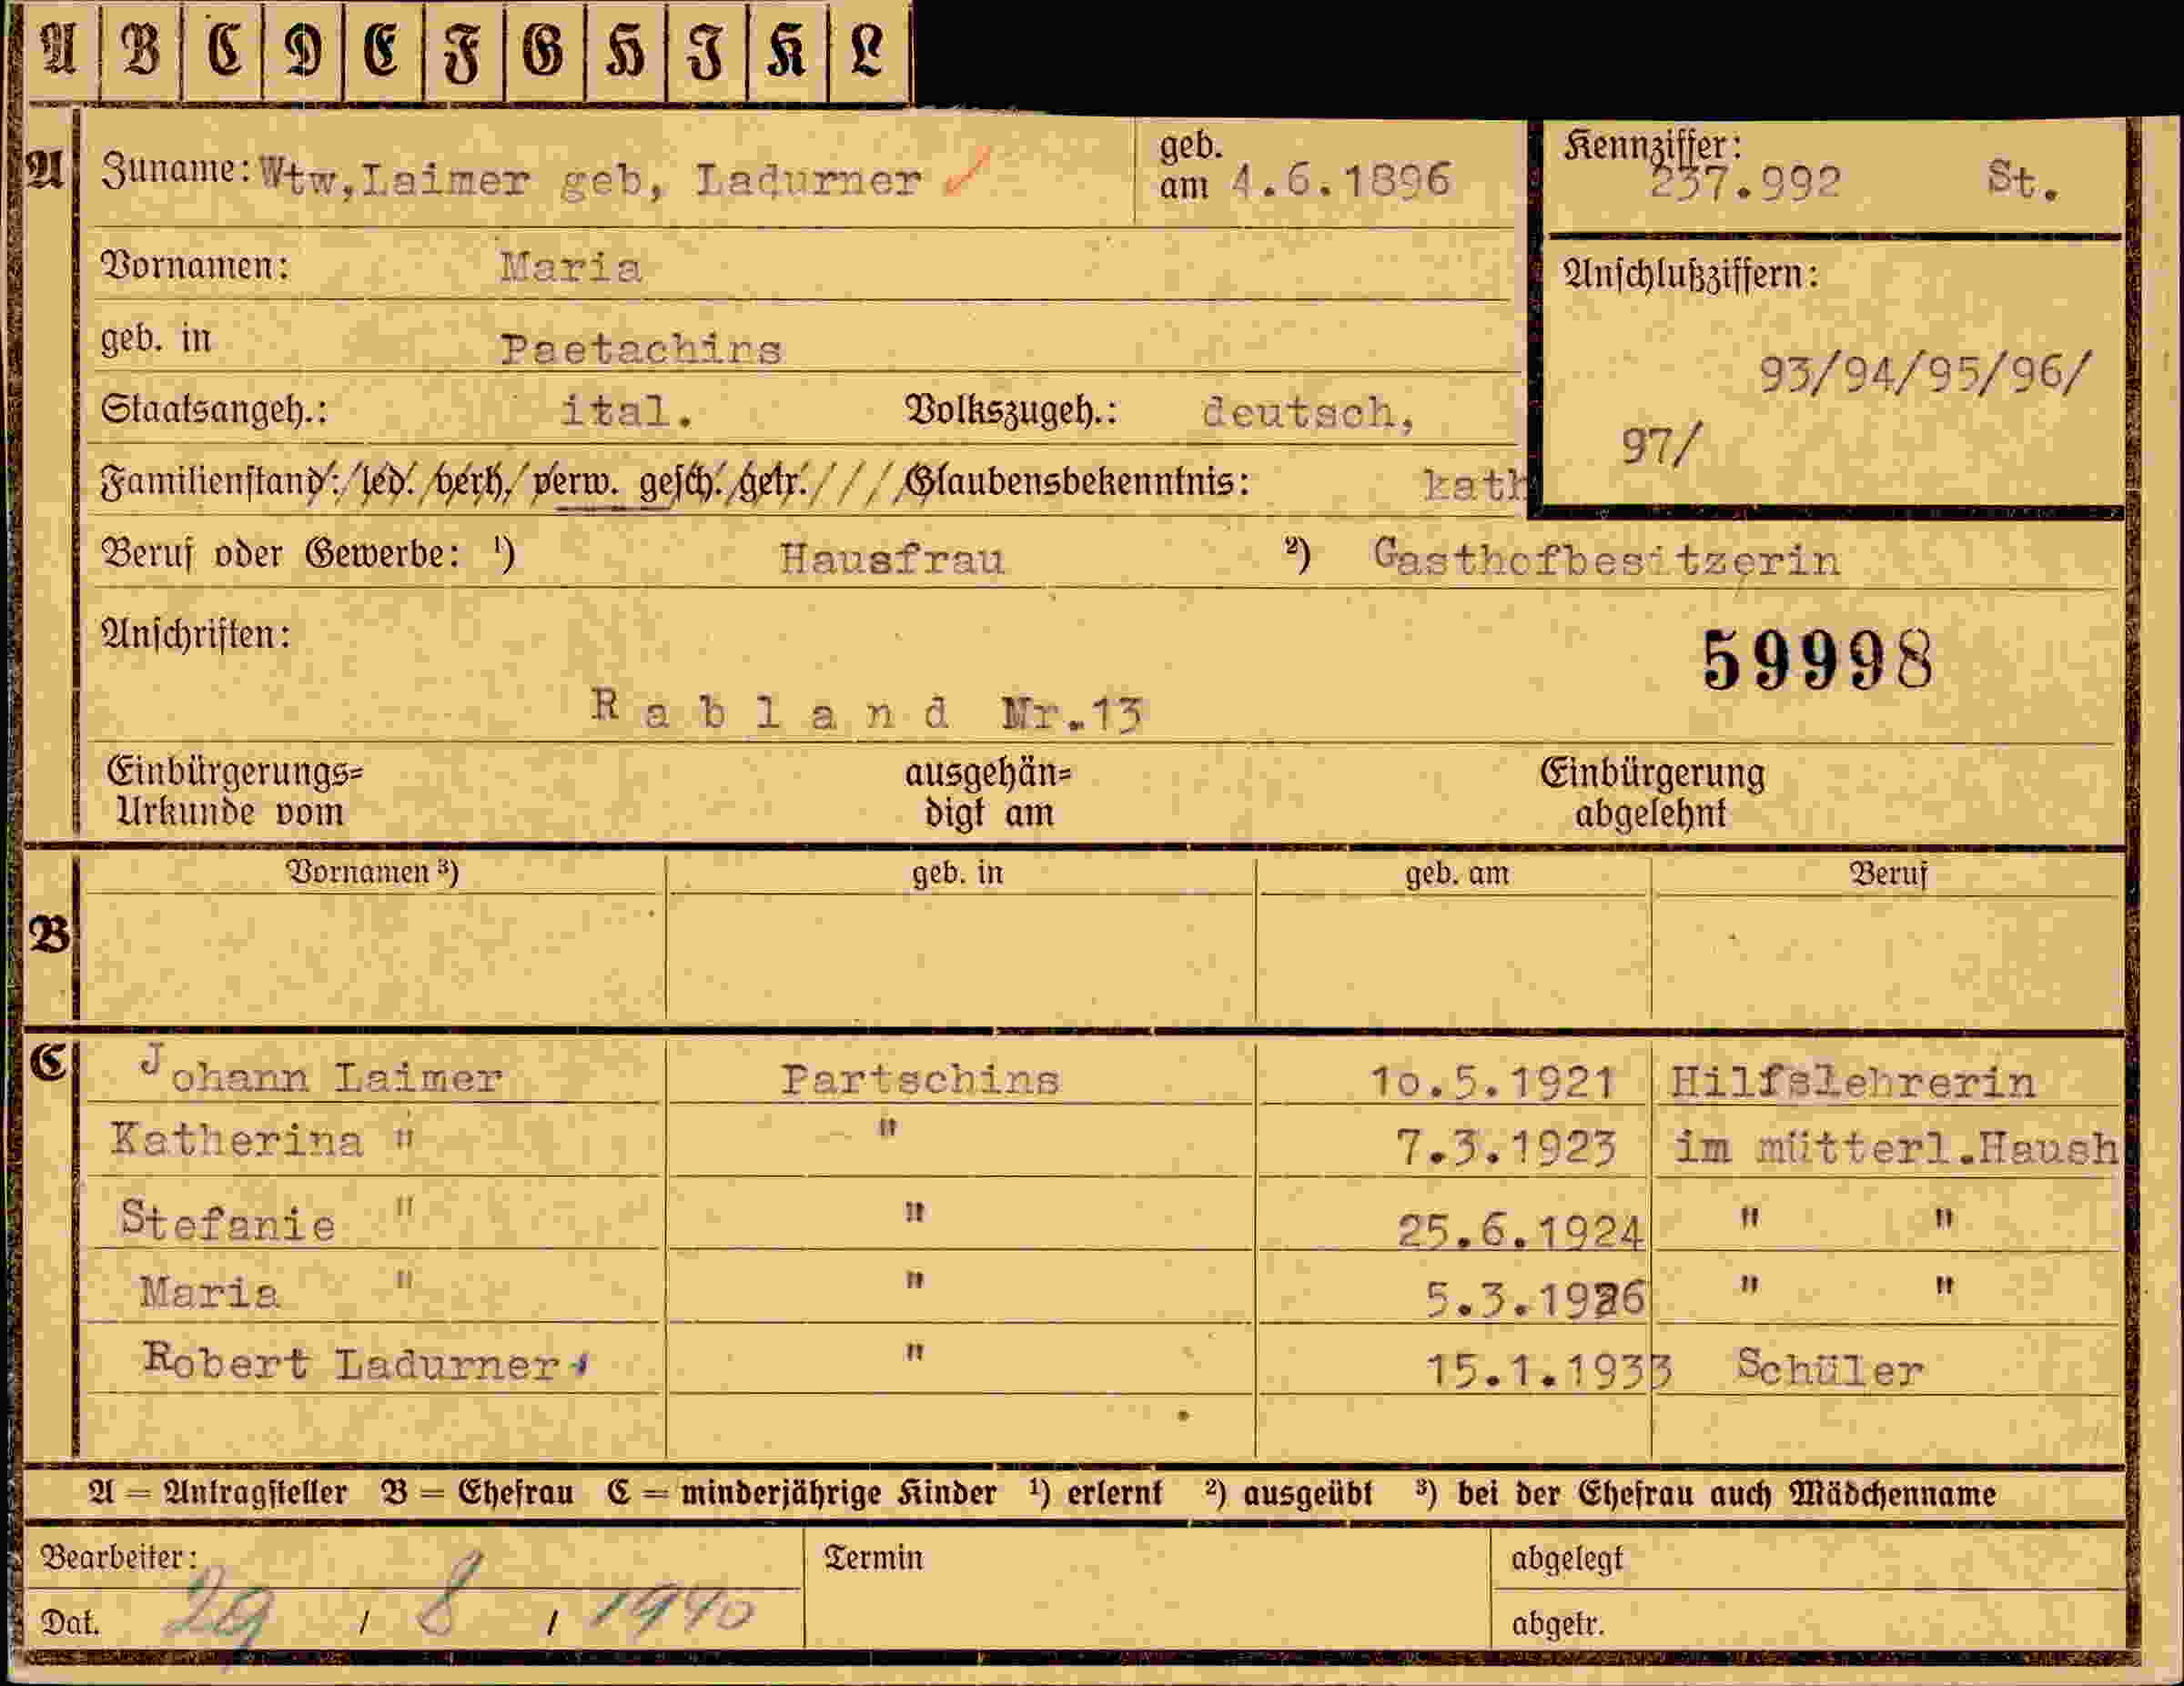 A B C D E F G H I K L
A Zuname: Wtw,Laimer geb, Ladurner geb. am 4.6.1896 Kennziffer: 237.992 St.
Vornamen: Maria
Anschlußziffern:
geb. in Paetachirs
93/94/95/96/
Staatsangeh.: ital. Volkszugeh.: deutsch,
97/
Familienstand: led. verh. verw. gesch. getr. Glaubensbekenntnis: kath
Beruf oder Gewerbe: ¹) Hausfrau ²) Gasthofbesitzerin
Anschriften:
59998
Rabland Nr.13
Einbürgerungs= ausgehän= Einbürgerung
Urkunde vom digt am abgelehnt
Vornamen ³) geb. in geb. am Beruf
B
C Johann Laimer Partschins 10.5.1921 Hilfslehrerin
Katherina " " 7.3.1923 im mütterl.Haush
Stefanie " " 25.6.1924 " "
Maria " " 5.3.1926 " "
Robert Ladurner " 15.1.1933 Schüler
A = Antragsteller B = Ehefrau C = minderjährige Kinder ¹) erlernt ²) ausgeübt ³) bei der Ehefrau auch Mädchenname
Bearbeiter: Termin abgelegt
Dat. 29 / 8 / 1940 abgetr.